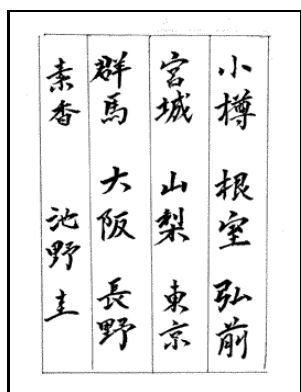 小樽 根室 弘前
宮城 山梨 東京
群馬 大阪 長野
素香 池野圭